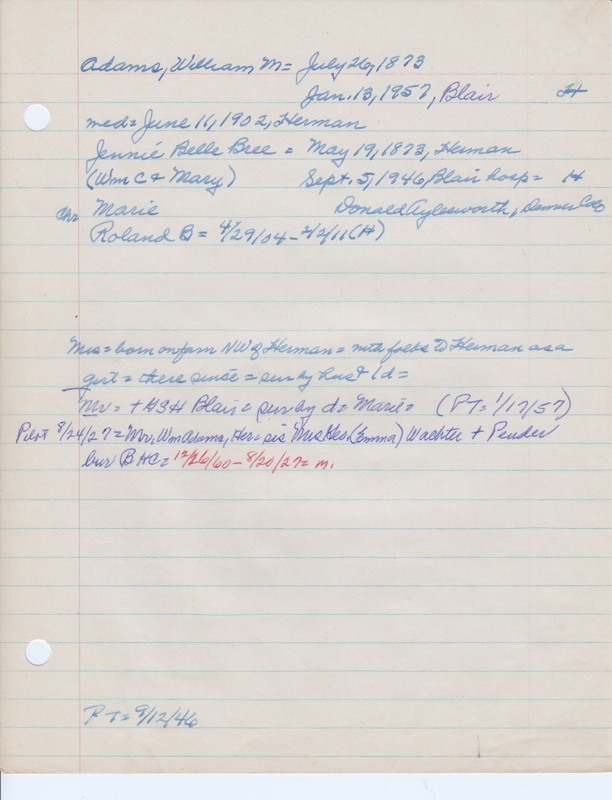 Adams, William M = July 26, 1873
Jan. 13, 1957, Blair H
med = June 11, 1902, Herman
Jennie Belle Bree = May 19, 1873, Herman
(Wm C & Mary) Sept. 5, 1946, Blair hosp = H
Chr Marie Donald Aylesworth, Denver Colo
Roland B = 4/29/04 - 2/2/11 (H)
Mrs = born on farm NW of Herman = with folks to Herman as a
girl = there since = sur by hus & 1 d =
Mr = + H Blair = sur by d = Marie = (PT = 1/17/57)
Pilot 8/24/27 = Mr, Wm Adams, Her = sis Mrs Geo. (Emma) Wachter + Pender
bur B HC = 12/26/60 - 8/20/27 = m.
PT = 9/12/46